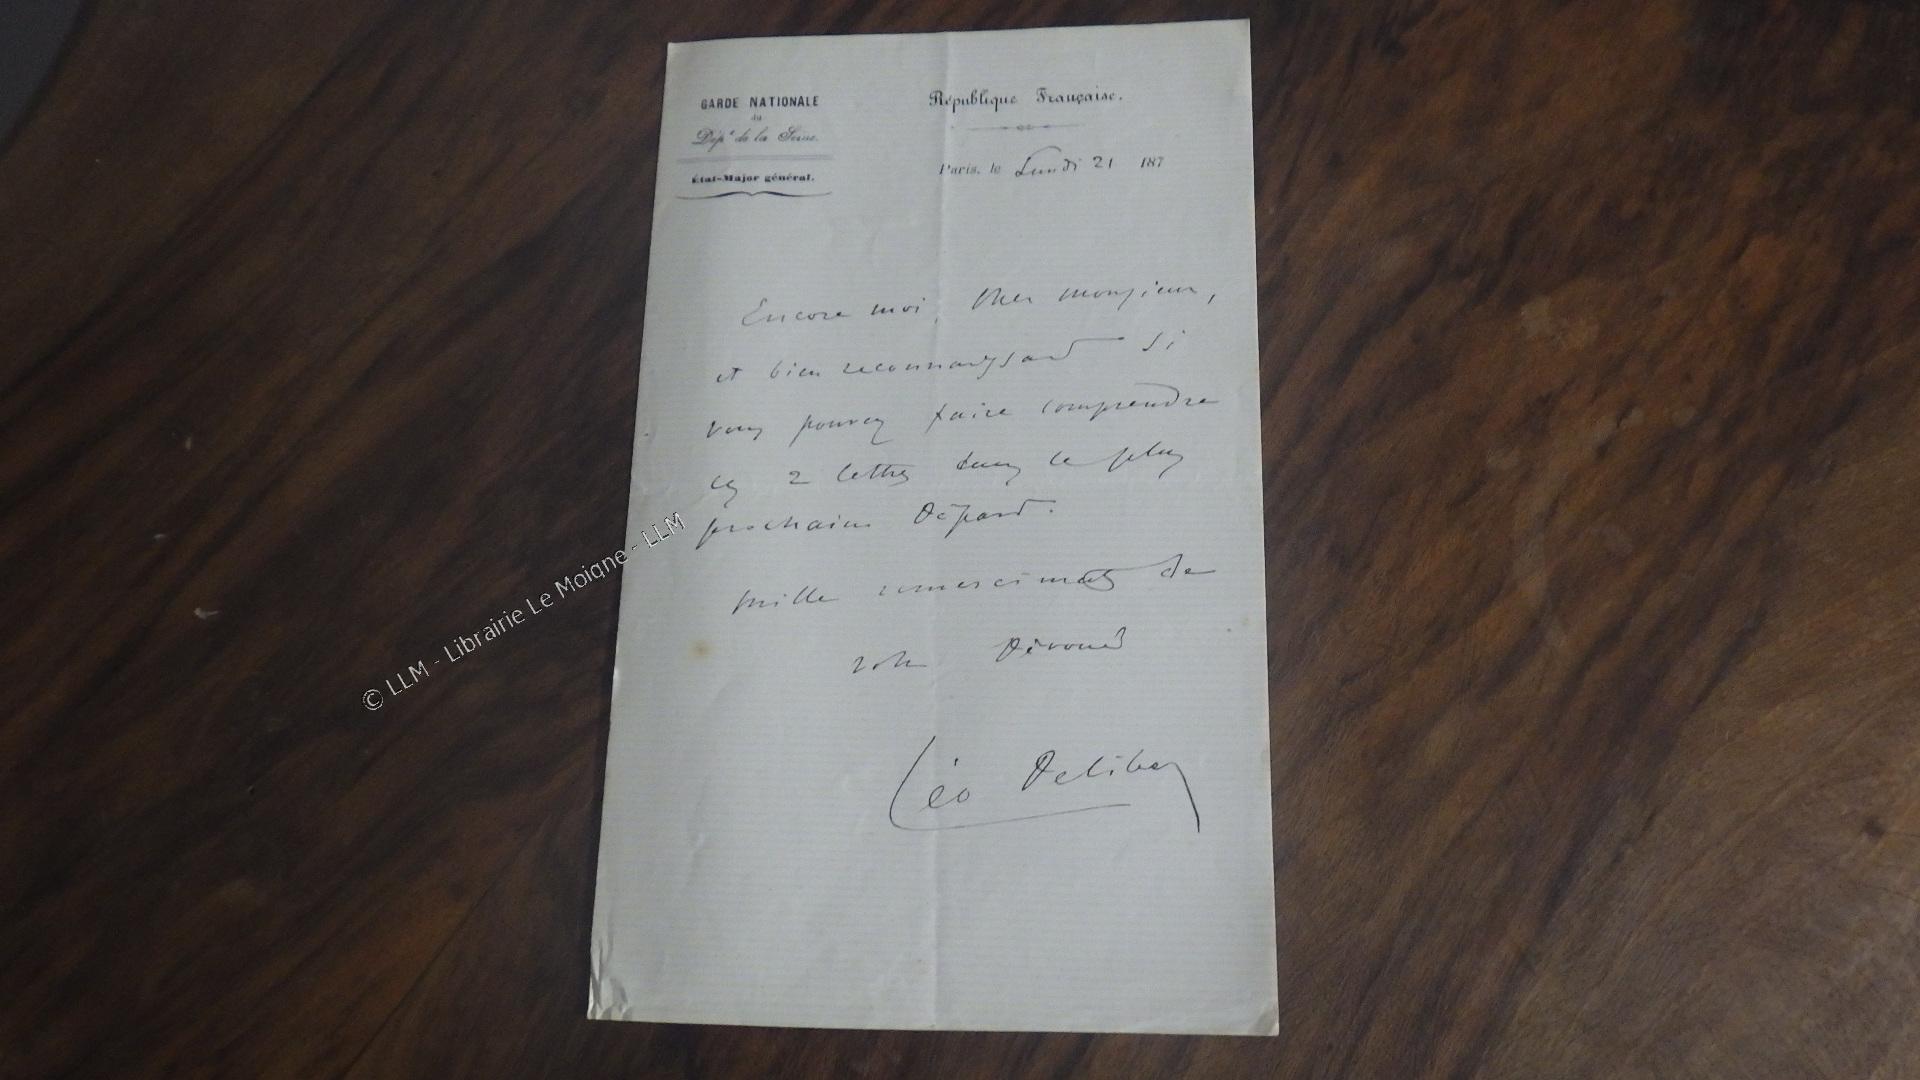 GARDE NATIONALE
du
Dépt de la Seine.
État-Major général.
République Française.
Paris, le Lundi 21 187
Encore moi, cher monsieur,
et bien reconnaissant si
vous pouvez faire comprendre
ces 2 lettres dans le plus
prochain départ.
Mille remerciments de
votre dévoué
Léo Delibes
© LLM - Librairie Le Moigne - LLM